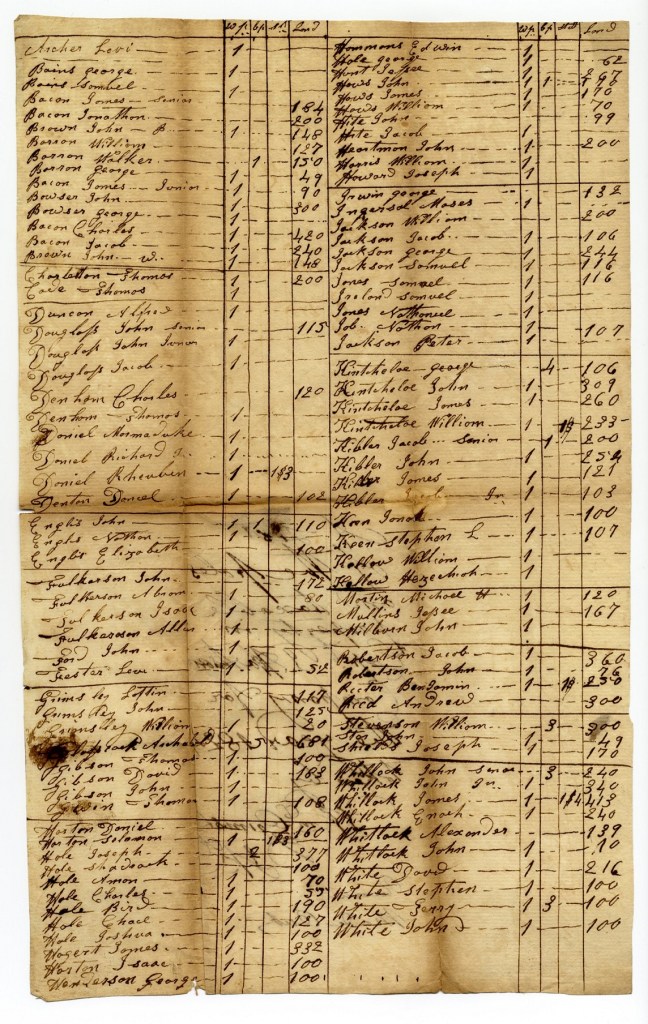 w p. b p. Land
Archer Levi — 1
Bains george. 1
Bains Samuel 1
Bacon James — senior 184
Bacon Jonathon 200
Brown John — B — 1 148
Barron William 127
Barron Walker 1 150
Barron george 1 49
Bacon James — Junior 1 90
Bowser John 1 300
Bowser George 1
Bacon Charles 1 420
Bacon Jacob 1 240
Brown John — W. 1 148
Charleton Thomas 1 200
Cade Thomas 1
Duncan Alfred 1
Douglass John senior 115
Douglass John Junior 1
Douglass Jacob 1
Denham Charles 120
Denham Thomas 1
Daniel Marmaduke 1
Daniel Richard 1
Daniel Rheuben 1
Denton Daniel 1 102
English John 1 1 110
English Nathan 1
English Elizabeth 100
Fulkerson John 1 172
Fulkerson Abram 1 80
Fulkerson Isaac 1
Fulkerson 1
Ford John 1
Fester Levi 1 52
Grimsley Lottin
Grimsley John 125
Grimsley William 20
681
Gibson Thomas 1 100
Gibson David 1 183
Gibson John 1
Thomas 1 108
Horton Daniel 160
Horton Solomon 1
Hole Joseph 2 377
Hole Shadrack 100
Hole Amon 1 70
Hole Charles 1
Hole Bird 1 190
Hole Chael 1 127
Hole Joshua 1 100
Hogert James 1 332
Horton Isaac 1 100
Henderson George 1 100
w p b p Land
Hommons Edwin 1
Hole george 1 62
Hunt Jessee 1
Hows John 1 1 297
Hows James 1 170
Hows William 1 70
Hite John 99
Hite Jacob 1
Heartmon John 1 200
Harris William 1
Howard Joseph 1
Irwin george 132
Ingersol Moses 1
Jackson William 200
Jackson Jacob 1 106
Jackson george 1 244
Jackson Samuel 1 116
Jones Samuel 1 116
Ireland Samuel 1
Jones Nathaniel 1
Job Nathan 1 107
Jackson Peter 1
Kintcheloe george 4 106
Kintcheloe John 1 309
Kintcheloe James 1 260
Kintcheloe William 1 233
Kibler Jacob — senior 1 200
Kibler John 1 254
Kibler James 1 121
Kibler Jacob Jn 1 103
Keen Jonas 1 100
Keen Stephen L 1 107
Kallow William 1
Kallow Hezeciah 1
Martin Michael H 1 120
Mullins Jessee 1 167
Milburn John 1
Robertson Jacob 1 360
Robertson John 1 76
Rector Benjamin 1 230
Reed Andrew 1 300
Steverson William 3 300
John 1 49
Joseph 1 170
Whitlock John senior 3 240
Whitlock John Jn. 1 340
Whitlock James 1 413
Whitlock Enoch 1 240
Whitlock Alexander 1 139
Whitlock John 1 70
White David 1 216
White Stephen 1 100
White Terry 1 3 100
White John 1 100